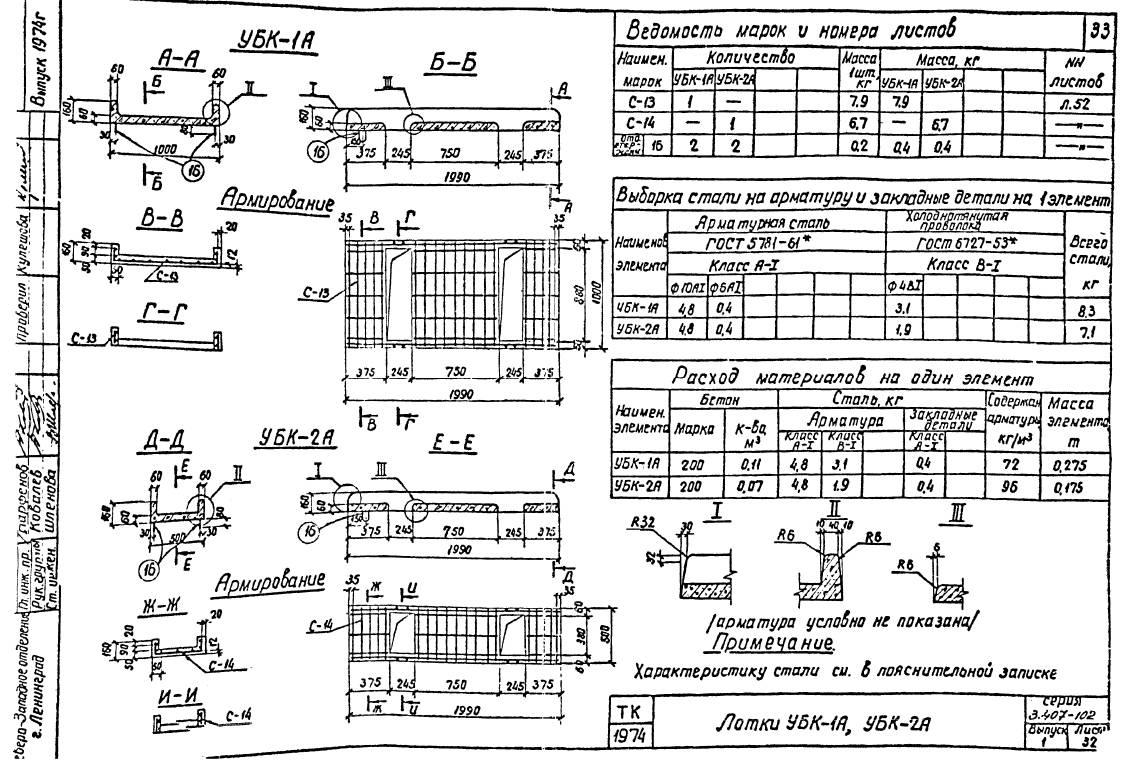 33
Выпуск 1974г
УБК-1А
А-А
Б-Б
Армирование
В-В
Г-Г
С-13
С-13
С-13
60 60 Б I II III А
160 60 30 80 30
1000
16
375 245 750 245 375
1990
35 В Г 35
860 1000
375 245 750 245 375
1990
В Г
УБК-2А
Д-Д
Е-Е
60 Е 60 II I III Д
160 60 30 30
500
16
150
375 245 750 245 375
1990
Армирование
35 Ж И 35
Ж-Ж
С-14
С-14
60 380 60 500
375 245 750 245 375
Ж И
1990
И-И
С-14
Ведомость марок и номера листов
Наимен. марок Количество Масса 1шт. кг Масса, кг NN листов
УБК-1А УБК-2А УБК-1А УБК-2А
С-13 1 — 7.9 7.9 л.52
С-14 — 1 6,7 — 6,7 —"—
16 2 2 0.2 0,4 0.4 —"—
Выборка стали на арматуру и закладные детали на 1 элемент
Наименов элемента Арматурная сталь Холоднотянутая проволока Всего стали, кг
ГОСТ 5781-61* ГОСТ 6727-53*
Класс А-I Класс В-I
ф10АI ф6АI ф4ВI
УБК-1А 4,8 0,4 3.1 8,3
УБК-2А 4.8 0,4 1,9 7.1
Расход материалов на один элемент
Наимен. элемента Бетон Сталь, кг Содержан. арматуры кг/м³ Масса элемента, т
Марка к-во м³ Арматура Закладные детали
Класс А-I Класс В-I Класс А-I
УБК-1А 200 0,11 4,8 3.1 0,4 72 0,275
УБК-2А 200 0,07 4,8 1.9 0,4 96 0,175
I II III
R32 30 32
10 40 10 R6 R8
6 R8
/арматура условно не показана/
Примечание.
Характеристику стали см. в пояснительной записке
ТК
1974
Лотки УБК-1А, УБК-2А
серия
3.407-102
Выпуск Лист
1 32
Проверил Кулешова
Гл. инж. пр. Парфенов
Рук. группы Ковалев
Ст. инжен. Шленова
Северо-Западное отделение
г. Ленинград